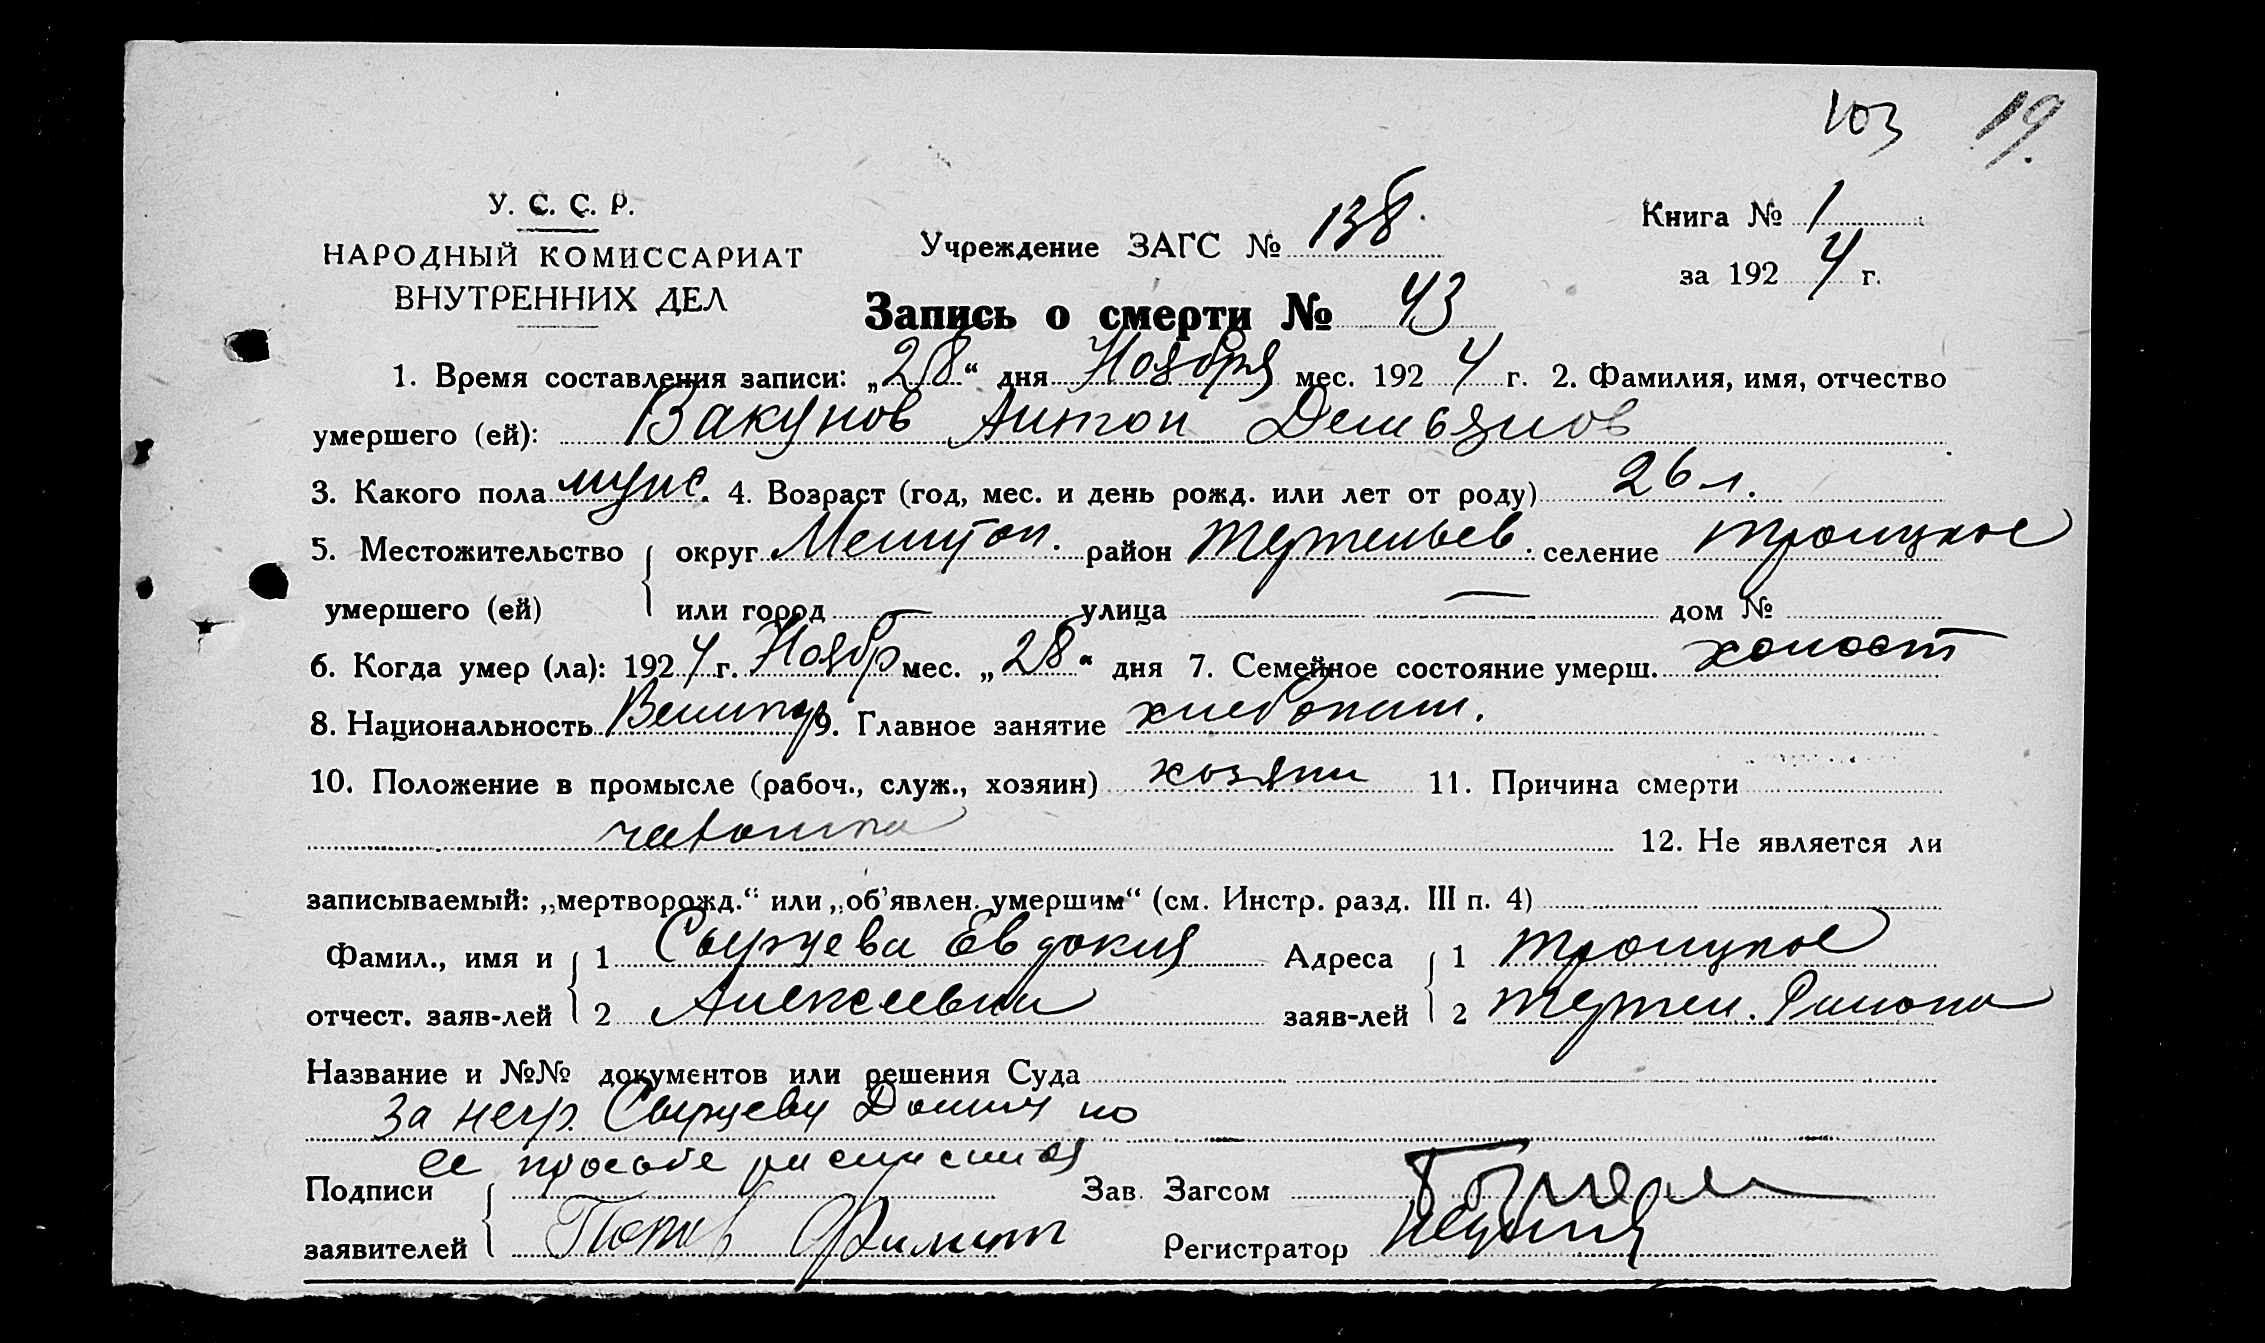 103 19.
У. С. С. Р.
НАРОДНЫЙ КОМИССАРИАТ
ВНУТРЕННИХ ДЕЛ
Учреждение ЗАГС № 138.
Книга № 1
за 1924 г.
Запись о смерти № 43
1. Время составления записи: „28“ дня Ноября мес. 1924 г. 2. Фамилия, имя, отчество
умершего (ей): Вакунов Антон Демьянов
3. Какого пола муж. 4. Возраст (год, мес. и день рожд. или лет от роду) 26 л.
5. Местожительство округ Мелитоп. район Терпеньев. селение Троицкое
умершего (ей) или город — улица — дом №
6. Когда умер (ла): 1924 г. Ноябр мес. „28“ дня 7. Семейное состояние умерш. холост
8. Национальность Великор 9. Главное занятие хлебопаш.
10. Положение в промысле (рабоч., служ., хозяин) хозяин 11. Причина смерти
чахотка 12. Не является ли
записываемый: „мертворожд.“ или „об'явлен. умершим“ (см. Инстр. разд. III п. 4)
Фамил., имя и 1 Сырцева Евдокия Адреса 1 Троицкое
отчест. заяв-лей 2 Алексеевна заяв-лей 2 Терпен. Района
Название и №№ документов или решения Суда
За негр. Сырцеву по
ее прозбе расписался
Подписи Зав. Загсом
заявителей Попов Филипп Регистратор